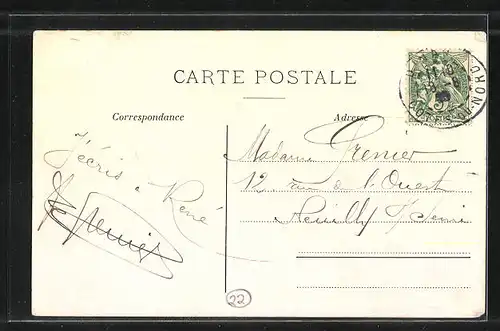 CARTE POSTALE
Correspondance
Adresse
J'écris à René
Grenier
Madame Grenier
12, rue de l'Ouest
Neuilly s/ Seine
22